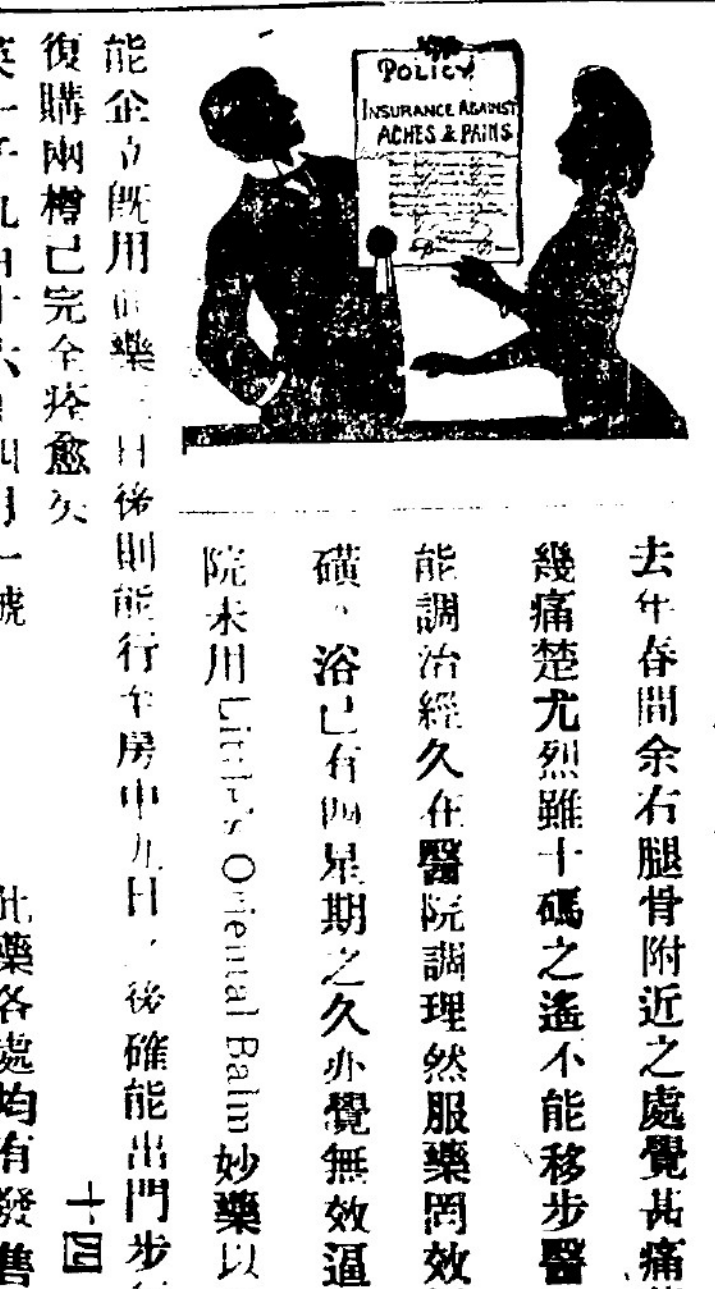 POLICY
INSURANCE AGAINST
ACHES & PAINS
去年春間余右腿骨附近之處覺甚痛
幾痛楚尤烈雖十碼之遙不能移步醫
能調治經久在醫院調理然服藥罔效
磺 浴已有四星期之久亦覺無效逼
院未用 Little's Oriental Balm 妙藥以
能企立既用 藥 日後則能行 房中九日 後確能出門步
復購兩樽已完全痊愈矣
十四
四月一號
此藥各處均有發售